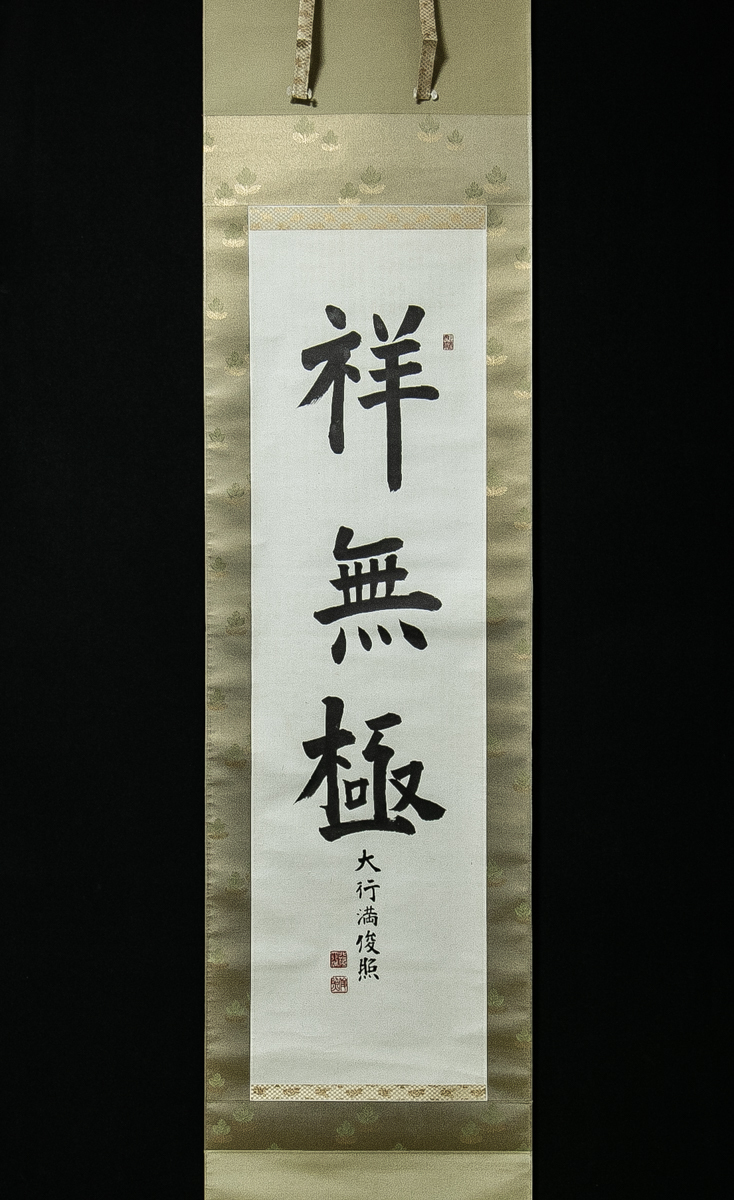 祥無極
大行満俊照